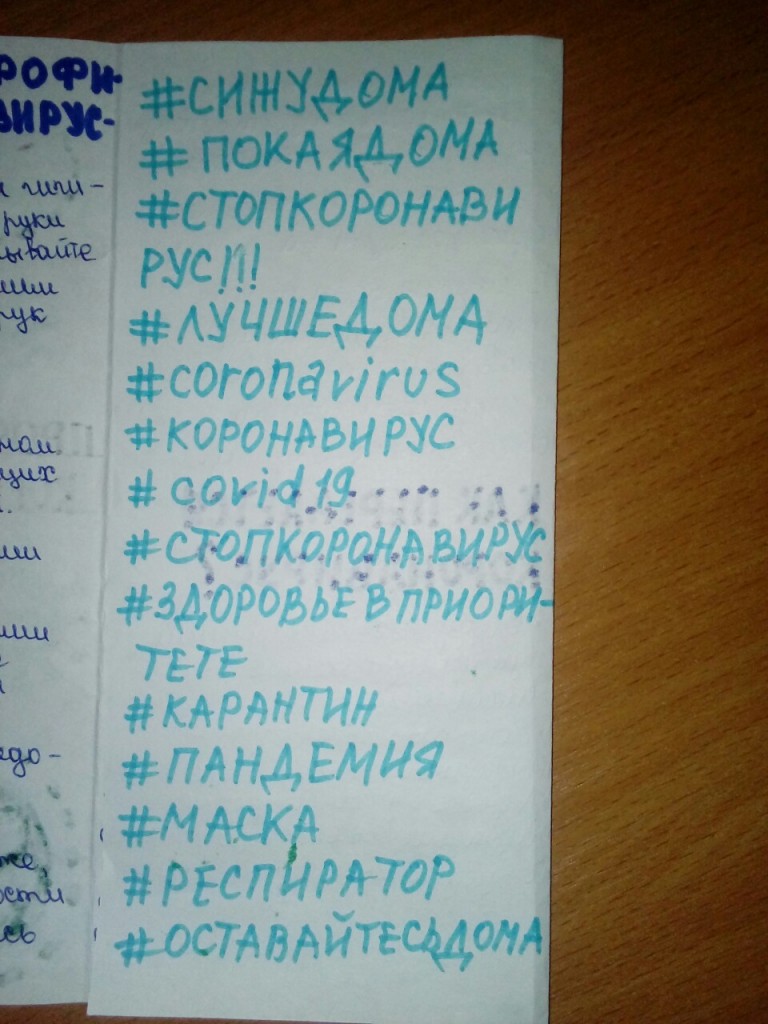 РОФИ-
ВИРУС-
гиги-
руки
ывайте
рук
щих
едо-
ости
сь
#СИЖУДОМА
#ПОКАЯДОМА
#СТОПКОРОНАВИ
РУС!!!
#ЛУЧШЕДОМА
#coronavirus
#КОРОНАВИРУС
#covid19
#СТОПКОРОНАВИРУС
#ЗДОРОВЬЕВПРИОРИ-
ТЕТЕ
#КАРАНТИН
#ПАНДЕМИЯ
#МАСКА
#РЕСПИРАТОР
#ОСТАВАЙТЕСЬДОМА